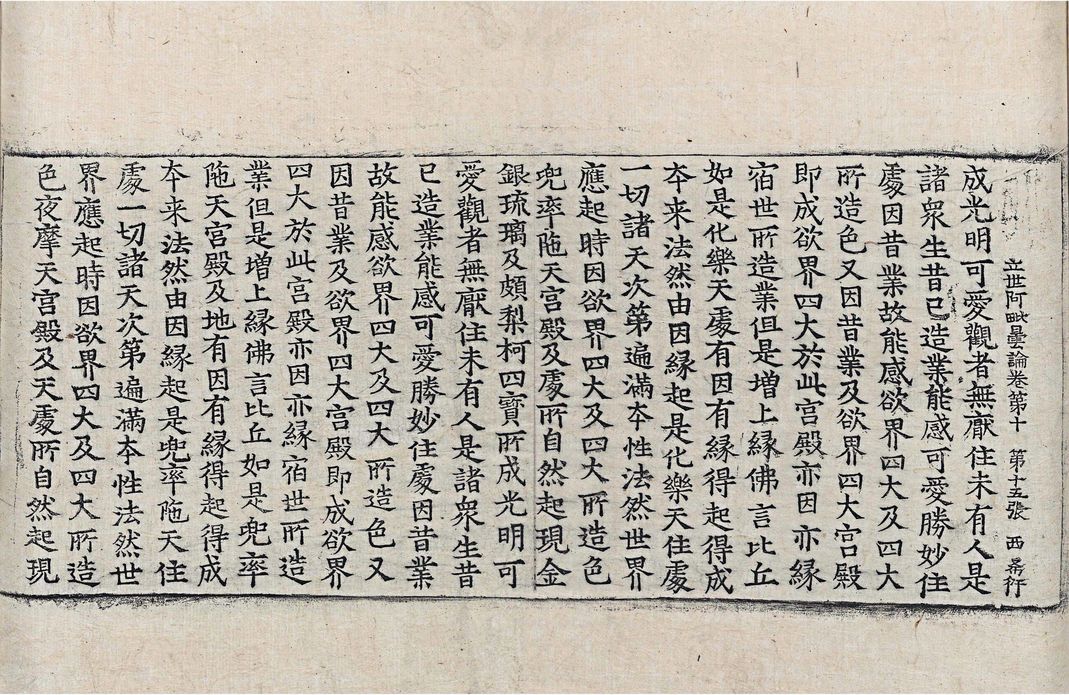 立世阿毗曇論卷第十 第十五張 西 行
成光明可愛觀者無厭住未有人是
諸衆生昔已造業能感可愛勝妙住
處因昔業故能感欲界四大及四大
所造色又因昔業及欲界四大宮殿
即成欲界四大於此宮殿亦因亦緣
宿世所造業但是增上緣佛言比丘
如是化樂天處有因有緣得起得成
本来法然由因緣起是化樂天住處
一切諸天次第遍滿本性法然世界
應起時因欲界四大及四大所造色
兜率陁天宮殿及處所自然起現金
銀琉璃及頗梨柯四寶所成光明可
愛觀者無厭住未有人是諸衆生昔
已造業能感可愛勝妙住處因昔業
故能感欲界四大及四大所造色又
因昔業及欲界四大宮殿即成欲界
四大於此宮殿亦因亦緣宿世所造
業但是增上緣佛言比丘如是兜率
陁天宮殿及地有因有緣得起得成
本来法然由因緣起是兜率陁天住
處一切諸天次第遍滿本性法然世
界應起時因欲界四大及四大所造
色夜摩天宮殿及天處所自然起現